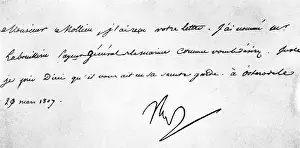 Monsieur Mollien, j'ai reçu votre lettre. J'ai nommé Mr
Labouillerie Payeur Général de la marine comme vous le désirez. Sur ce
je prie Dieu qu'il vous ait en sa sainte garde. à Osterode le
29 mars 1807.